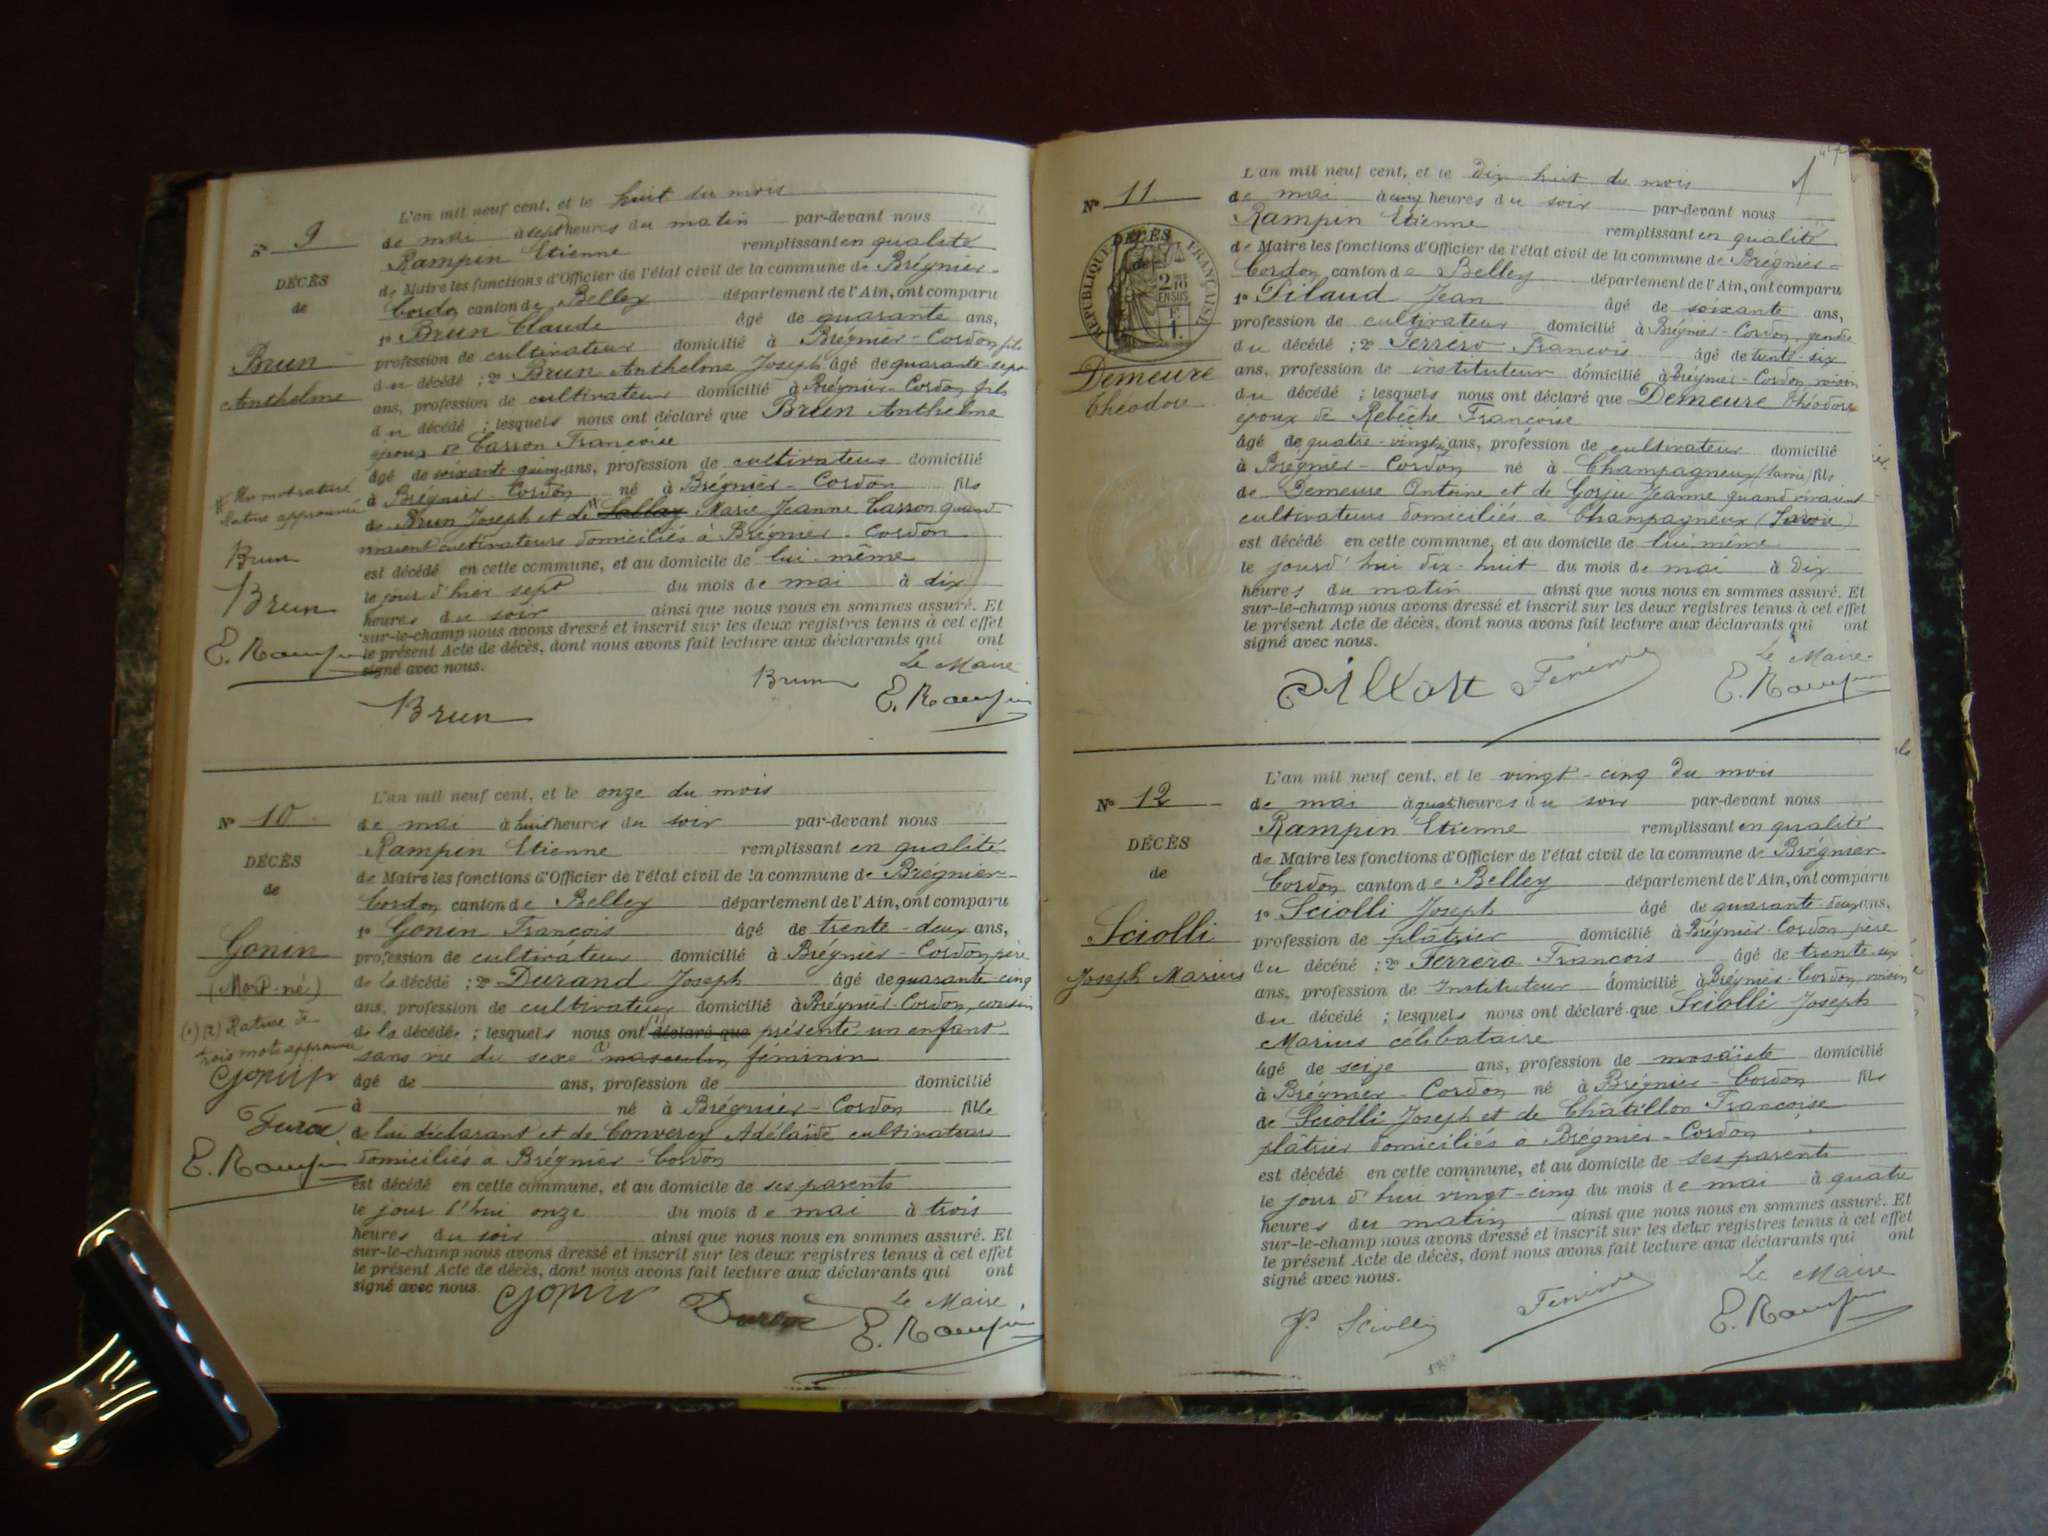 L'an mil neuf cent, et le huit du mois
N° 9 de mai à sept heures du matin par-devant nous
Rampin Etienne remplissant en qualité
DÉCÈS de Maire les fonctions d'Officier de l'état civil de la commune de Brégnier-
de Cordon canton de Belley département de l'Ain, ont comparu
1° Brun Claude âgé de quarante ans,
Brun profession de cultivateur domicilié à Brégnier-Cordon fils
Anthelme du décédé ; 2° Brun Anthelme Joseph âgé de quarante-sept
ans, profession de cultivateur domicilié à Brégnier-Cordon, fils
du décédé ; lesquels nous ont déclaré que Brun Anthelme
époux de Carron Françoise
âgé de soixante quinze ans, profession de cultivateur domicilié
Un mot raturé à Brégnier-Cordon né à Brégnier-Cordon fils
Rature approuvée de Brun Joseph et de Marie Jeanne Carron quand
vivaient cultivateurs domiciliés à Brégnier-Cordon
Brun est décédé en cette commune, et au domicile de lui-même
Brun le jour d'hier sept du mois de mai à dix
heures du soir ainsi que nous nous en sommes assuré. Et
E. Rampin sur-le-champ nous avons dressé et inscrit sur les deux registres tenus à cet effet
le présent Acte de décès, dont nous avons fait lecture aux déclarants qui ont
signé avec nous.
Le Maire
Brun Brun E. Rampin
L'an mil neuf cent, et le onze du mois
N° 10 de mai à huit heures du soir par-devant nous
Rampin Etienne remplissant en qualité
DÉCÈS de Maire les fonctions d'Officier de l'état civil de la commune de Brégnier-
de Cordon canton de Belley département de l'Ain, ont comparu
1° Gonin François âgé de trente-deux ans,
Gonin profession de cultivateur domicilié à Brégnier-Cordon père
(Mort-né) de la décédé ; 2° Durand Joseph âgé de quarante-cinq
ans, profession de cultivateur domicilié à Brégnier-Cordon, cousin
(1) (2) Rature de de la décédée ; lesquels nous ont déclaré que présenté un enfant
trois mots approuvée sans vie du sexe masculin féminin
Gonin âgé de ans, profession de domicilié
à né à Brégnier-Cordon fille
de lui déclarant et de Convercy Adélaïde cultivateurs
E. Rampin domiciliés à Brégnier-Cordon
est décédé en cette commune, et au domicile de ses parents
le jour d'hui onze du mois de mai à trois
heures du soir ainsi que nous nous en sommes assuré. Et
sur-le-champ nous avons dressé et inscrit sur les deux registres tenus à cet effet
le présent Acte de décès, dont nous avons fait lecture aux déclarants qui ont
signé avec nous.
Le Maire,
Gonin E. Rampin
L'an mil neuf cent, et le dix-huit du mois
N° 11 de mai à cinq heures du soir par-devant nous
Rampin Etienne remplissant en qualité
DÉCÈS de Maire les fonctions d'Officier de l'état civil de la commune de Brégnier-
de Cordon canton de Belley département de l'Ain, ont comparu
RÉPUBLIQUE FRANÇAISE 2/10 EN SUS
1° Pilaud Jean âgé de soixante ans,
profession de cultivateur domicilié à Brégnier-Cordon, gendre
du décédé ; 2° Ferrero François âgé de trente-six
Demeure ans, profession de instituteur domicilié à Brégnier-Cordon, voisin
Théodore du décédé ; lesquels nous ont déclaré que Demeure Théodore
époux de Rebèche Françoise
âgé de quatre-vingts ans, profession de cultivateur domicilié
à Brégnier-Cordon né à Champagneux (Savoie) fils
de Demeure Antoine et de Gorju Jeanne quand vivaient
cultivateurs domiciliés à Champagneux (Savoie)
est décédé en cette commune, et au domicile de lui même
le jourd'hui dix-huit du mois de mai à dix
heures du matin ainsi que nous nous en sommes assuré. Et
sur-le-champ nous avons dressé et inscrit sur les deux registres tenus à cet effet
le présent Acte de décès, dont nous avons fait lecture aux déclarants qui ont
signé avec nous.
Le Maire
E. Rampin
L'an mil neuf cent, et le vingt-cinq du mois
N° 12 de mai à quatre heures du soir par-devant nous
Rampin Etienne remplissant en qualité
DÉCÈS de Maire les fonctions d'Officier de l'état civil de la commune de Brégnier-
de Cordon canton de Belley département de l'Ain, ont comparu
1° Sciolli Joseph âgé de quarante-deux ans,
Sciolli profession de plâtrier domicilié à Brégnier-Cordon père
Joseph Marius du décédé ; 2° Ferrero François âgé de trente-six
ans, profession de Instituteur domicilié à Brégnier-Cordon, voisin
du décédé ; lesquels nous ont déclaré que Sciolli Joseph
Marius célibataire
âgé de seize ans, profession de mosaïste domicilié
à Brégnier-Cordon né à Brégnier-Cordon fils
de Sciolli Joseph et de Châtillon Françoise
plâtrier domiciliés à Brégnier-Cordon
est décédé en cette commune, et au domicile de ses parents
le jour d'hui vingt-cinq du mois de mai à quatre
heures du matin ainsi que nous nous en sommes assuré. Et
sur-le-champ nous avons dressé et inscrit sur les deux registres tenus à cet effet
le présent Acte de décès, dont nous avons fait lecture aux déclarants qui ont
signé avec nous.
Le Maire
Sciolli E. Rampin